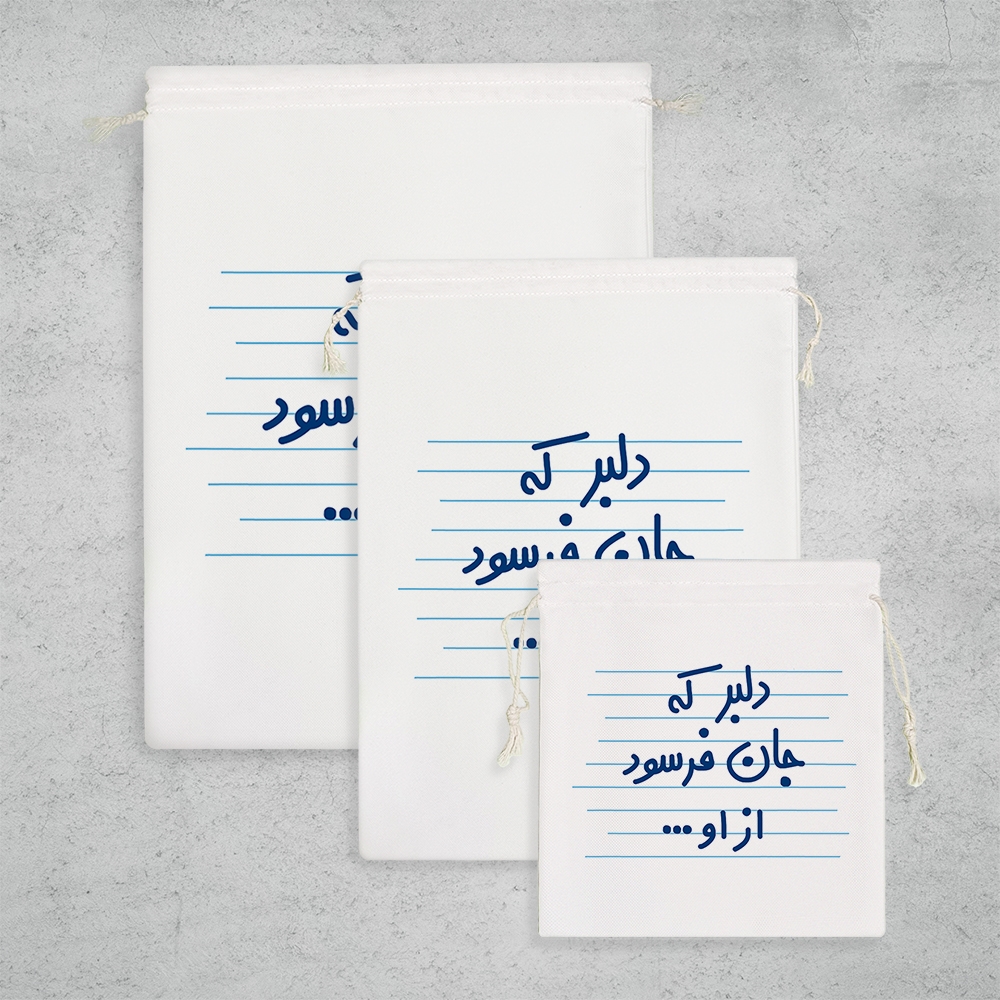 دلبر که
جان فرسود
دلبر که
جان فرسود
از او...